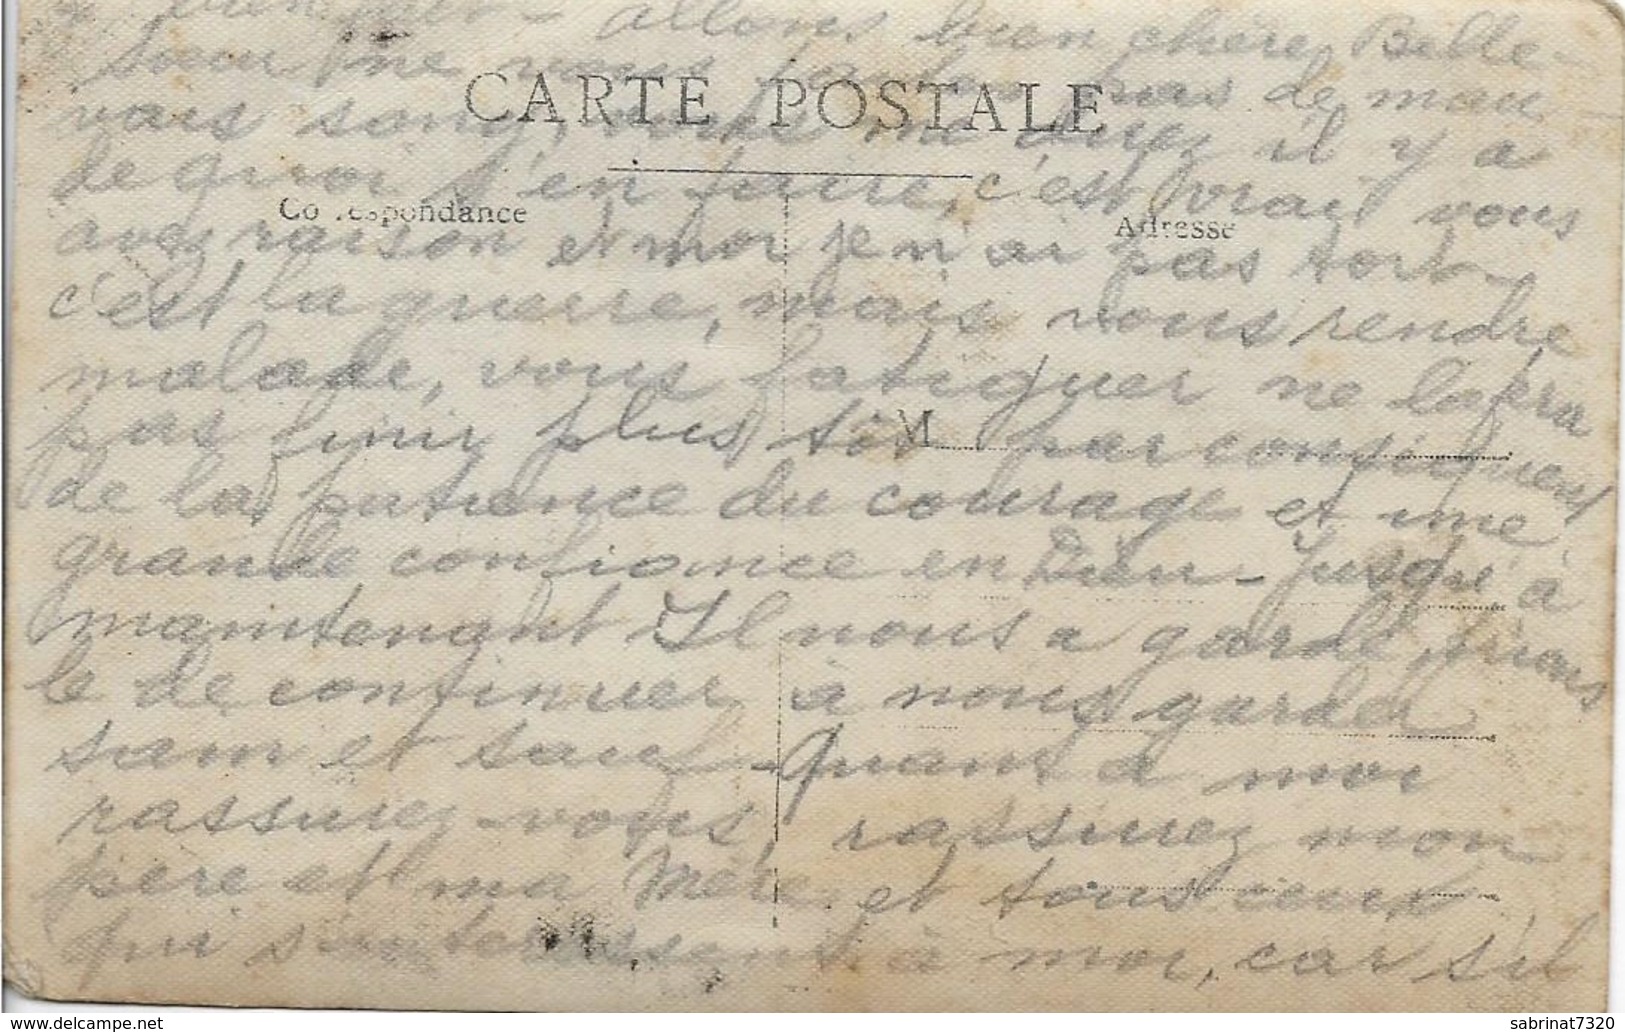 bien pur - allons bien chère Belle-
Sœur ne vous faites pas de mau
CARTE POSTALE
vais sang, vous me direz il y a
de quoi s'en faire, c'est vrai vous
Correspondance
Adresse
avez raison et moi je n'ai pas tort -
c'est la guerre, mais vous rendre
malade, vous fatiguer ne la fera
M
pas finir plus tôt par conséquent
de la patience du courage et une
grande confiance en Dieu - Jusqu'à
maintenant Il nous a gardé, prions
le de continuer à nous garder
sain et sauf - Quant à moi
rassurez-vous, rassurez mon
père et ma Mère et tous ceux
qui s'intéressent à moi, car s'il
sabrinat7320